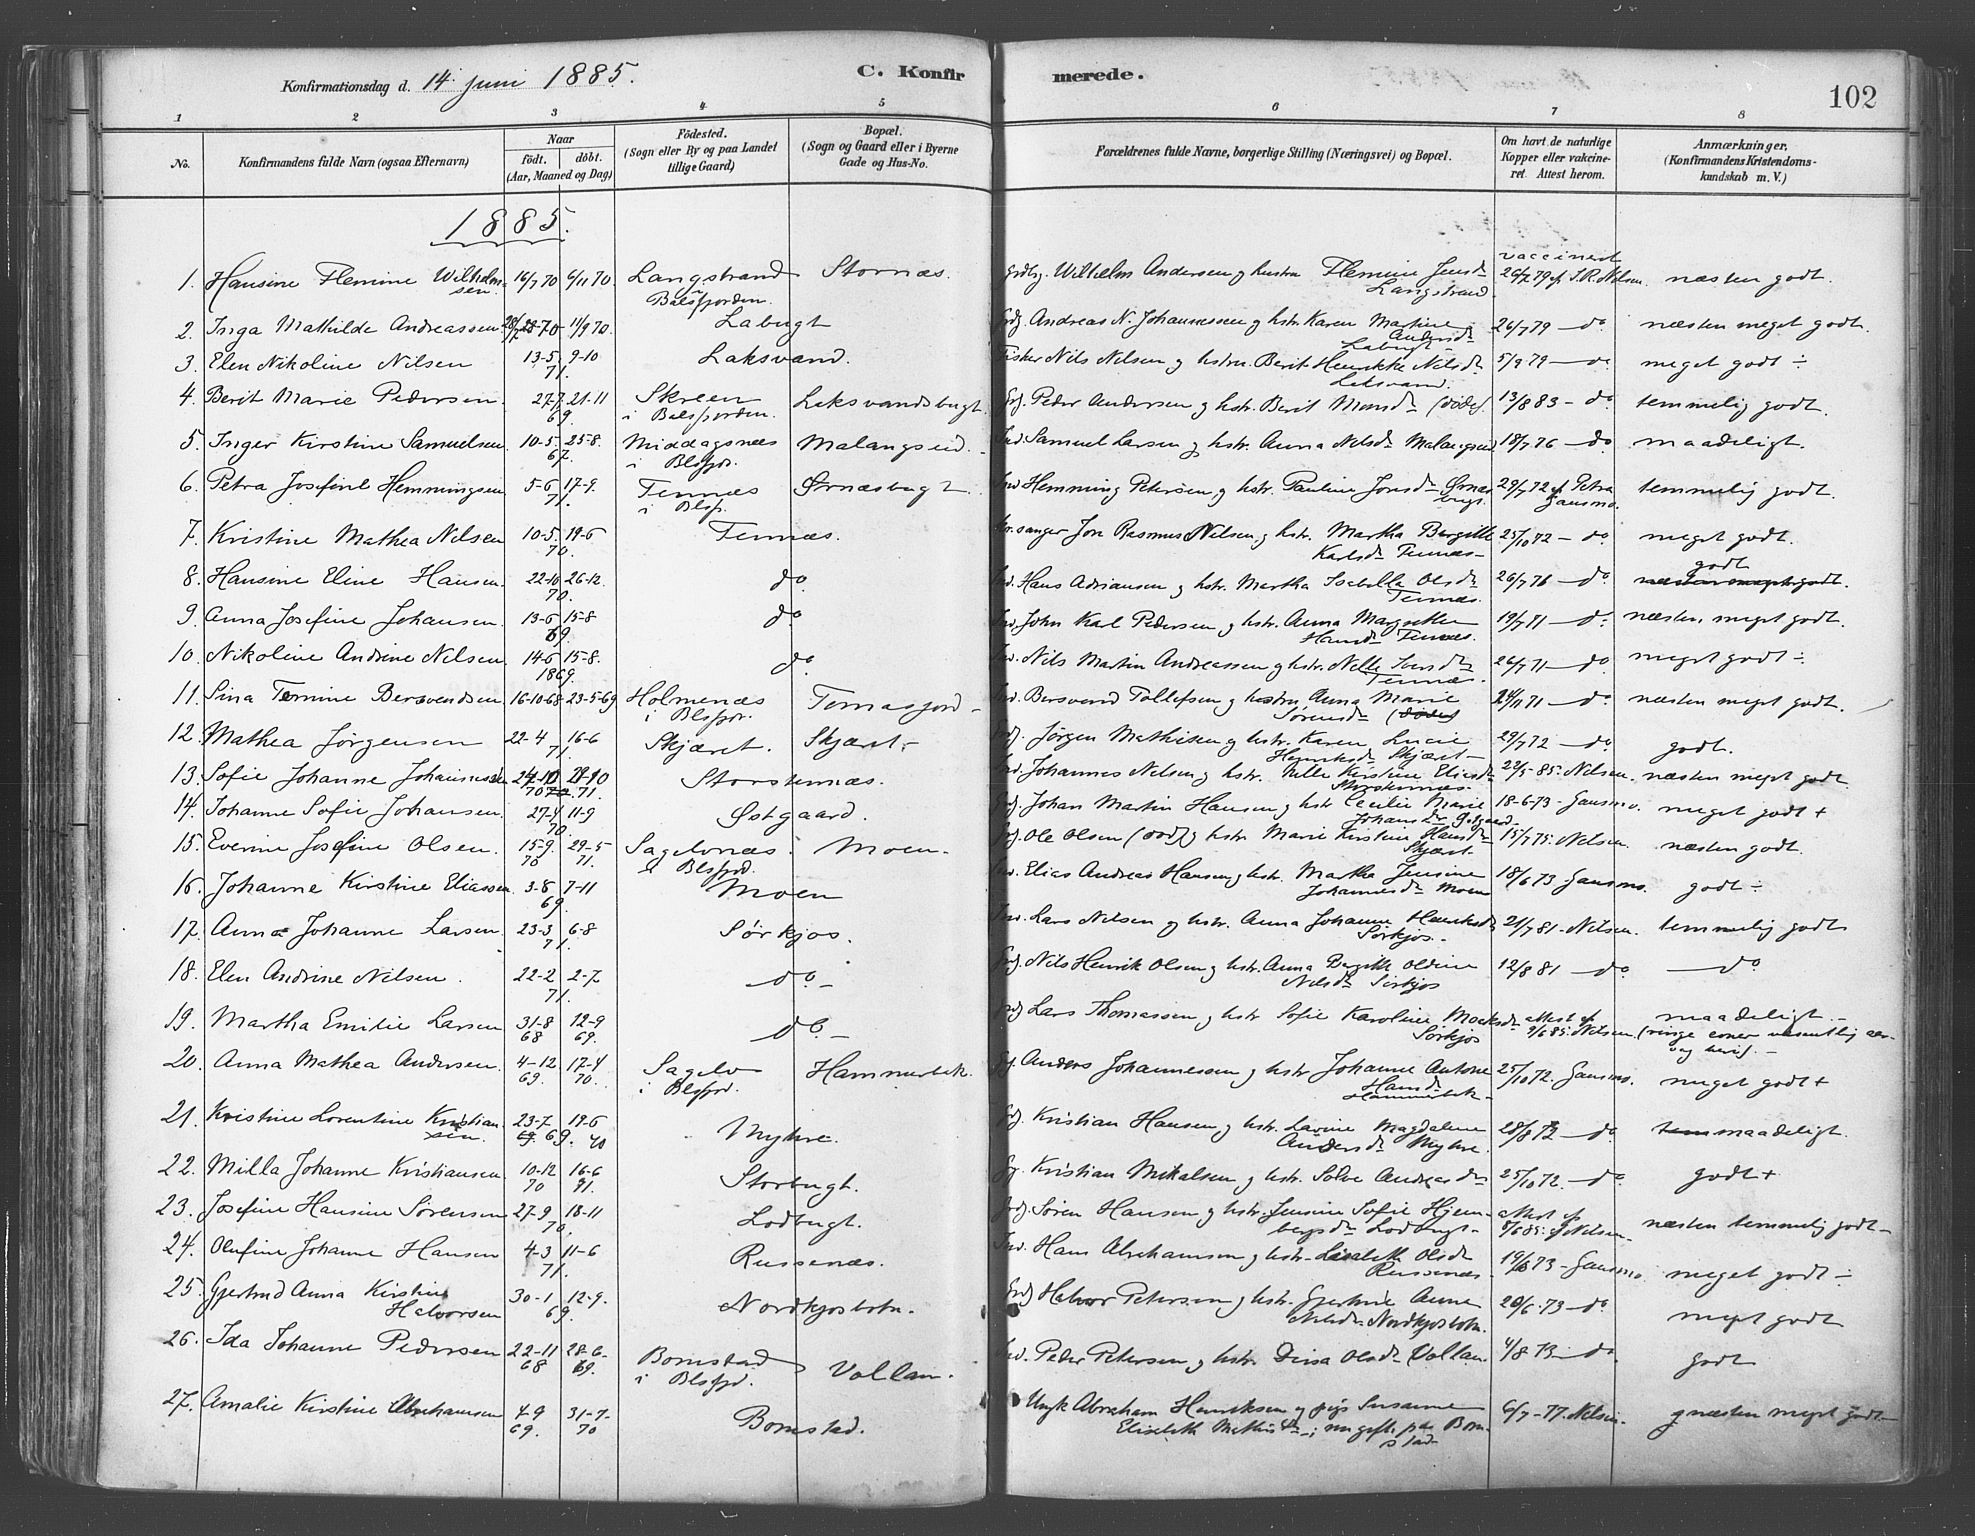 Konfirmationsdag d. 14 juni 1885.
C. Konfirmerede.
102
1 2 3 4 5 6 7 8
No.
Konfirmandens fulde Navn (ogsaa Efternavn)
Naar
födt. döbt.
(Aar, Maaned og Dag)
Födested.
(Sogn eller By og paa Landet
tillige Gaard)
Bopæl.
(Sogn og Gaard eller i Byerne
Gade og Hus-No.
Forældrenes fulde Navne, borgerlige Stilling (Næringsvei) og Bopæl.
Om havt de naturlige
Kopper eller vakcine-
ret. Attest herom.
Anmærkninger,
(Konfirmandens Kristendoms-
kundskab m. V.)
1885.
vaccineret
1. Hansine Flemine Wilhelm- 16/7 70 6/11 70 Langstrand Stornæs. Wilhelm Andersen og hustru Flemine Jensdr 26/7 79 af S.R. Nilsen næsten godt.
sen. i Balsfjorden. Langstrand
2. Inga Mathilde Andreassen 70 11/9 70. Labugt Andreas N. Johannessen og hstr. Karen Martine 26/7 79 — do næsten meget godt.
Labugt
3. Elen Nikoline Nilsen 13-5 9-10 71. Laksvand. Fisker Nils Nilsen og hstru. Berit Henrikke Nilsdr 5/9 79 — do meget godt ÷
Laksvand.
4. Berit Marie Pedersen. 27-7 21-11 69. Skreen Laksvandsbugt. Peder Andersen og hstr. Berit Monsdr (döde). 13/8 83 - do. temmelig godt.
i Balsfjorden.
5. Inger Kirstine Samuelsen 10-5 25-8. 67. Middagsnæs Malangseid. Ind. Samuel Larsen og hstr. Anna Nilsdr Malangseid 18/7 76 — do maadeligt.
i Blsfjor.
6. Petra Josefine Hemmingsen 5-6 17-9. 71. Tennæs Ørnæsbugt. Ind Hemming Petersen og hstr. Pauline Jonsdr Ørnæs- 29/7 72 af Petra temmelig godt.
i Blsfj. bugt. Gausmo.
7. Kristine Mathea Nilsen 10-5 19-6 70. Tennæs. Kr.sanger Jon Rasmus Nilsen og hstr. Martha Bergitte 25/10 72 — do. meget godt.
Karlsdr Tennæs—
8. Hansine Eline Hansen. 22-10 26-12. 70. do. Ind. Hans Adriansen og hstr. Martha Isabella Olsdr 26/7 76 — do. godt
Tennæs. næsten meget godt.
9. Anna Josefine Johansen. 13-6 15-8 69. do Ind. John Karl Pedersen og hstr. Anna Margrethe 19/7 71 — do. næsten meget godt.
Hansdr Tennæs.
10. Nikoline Andrine Nilsen. 14-6 15-8. 1869. do Ind. Nils Martin Andreassen og hstr. Nella Iversdr 26/7 71 — do meget godt ÷
Tennæs
11. Sina Temine Bersvendsen 16-10-68 23-5-69 Holmenæs Tomasjord — Ind. Bersvend Tollefsen og hustru Anna Marie 24/11 71 — do. næsten meget godt.
i Blsfjor. Sörensdr (döde)
12. Mathea Jørgensen 22-4 16-6 71. Skjæret. Skjæret. Jørgen Mathisen og hstr. Karen Lucie 29/7 72 — do godt.
Henriksdr Skjæret
13. Sofie Johanne Johannesdr 24-10 70 71. Storstennæs. Ind. Johannes Nilsen og hstr. Nelle Kirstine Eliasdr 22/5-85. Nilsen. næsten meget godt
Storstennæs.
14. Johanne Sofie Johansen. 27-4 11-9 70. Østgaard. Johan Martin Hansen og hstr Cecilie Marie 18-6-73 - Gausmo. meget godt +
Johansdr Østgaard
15. Everine Josefine Olsen. 15-9. 29-5 70 71. Sagelvnæs. Moen. Ole Olsen (död) og hstr. Marie Kirstine Hansdr 15/7 75. Nilsen. næsten godt.
i Blsfjd. Skjæret
16. Johanne Kirstine Eliassen 3-8 7-11 69. Moen Ind. Elias Andreas Hansen og hstr. Martha Jensine 18/6 73. Gausmo. godt ÷
Johannesdr Moen
17. Anna Johanne Larsen. 23-3 6-8 71. Sørkjos. Ind. Lars Nilsen og hstr. Anna Johanne Henriksdr 21/7 81 - Nilsen. temmelig godt
Sørkjos.
18. Elen Andrine Nilsen. 22-2 2-7 71. do. Nils Henrik Olsen og hstr. Anna Bergitte Oldine 12/8 81 — do — do
Nilsdr Sørkjos
19. Martha Emilie Larsen 31-8 12-9 68 69. do. Lars Thomassen og hstr Sofie Karoline attest af maadeligt.
Sørkjos 9/6 85. Nilsen. (ringe evner
20. Anna Mathea Andersen. 4-12 17-4 69. 70. Sagelv Hammerbek. Anders Johannessen og hstr Johanne Antone 25/10 72. Gausmo. meget godt +
i Blsfjor. Hansdr
Hammerbek.
21. Kristine Lorentine Kristian- 23-7 19-6 69. 70 Myhre. Kristian Hansen og hstr. Lavine Magdalene 28/8 72 — do. maadeligt.
sen. Andersdr Myhre.
22. Milla Johanne Kristiansen. 10-12 16-6 70 71. Storbugt. Kristian Mikalsen og hstr. Solve Andreasdr 25/10 72. — do. godt +
23. Josefine Hansine Sörensen 27-9 18-11 70. Lodbugt. Sören Hansen og hstr. Jensine Sofie Hjem- attest af næsten temmelig godt —
bergsdr Lodbugt. 8/6 85. af Nilsen
24. Olufine Johanne Hansen 4-3 11-6 71. Russenæs. Ind. Hans Abrahamsen og hstr. Lisabeth Olsdr 19/6 73 - Gausmo. meget godt ÷
Russenæs.
25. Gjertrud Anna Kirstine 30-1 12-9. 69. Nordkjosbotn. Halvor Petersen og hstr. Gjertrud Anna 20/6-73 — do meget godt
Halvorsen Nilsdr Nordkjosbotn.
26. Ida Johanne Pedersen 22-11 28-6- 68 69. Bomstad Vollan. Ind. Peder Petersen og hstr. Dina Olsdr Vollan. 4/8 73 — do. godt
i Blsfjd.
27. Amalie Kirstine Abrahamsen 4-9 31-7- 69. 70 Bomstad. Ungk Abraham Henriksen og pige Susanne 6/7-77. Nilsen. næsten meget godt
Elisabeth Mathisdr — nu gift paa Bom-
stad